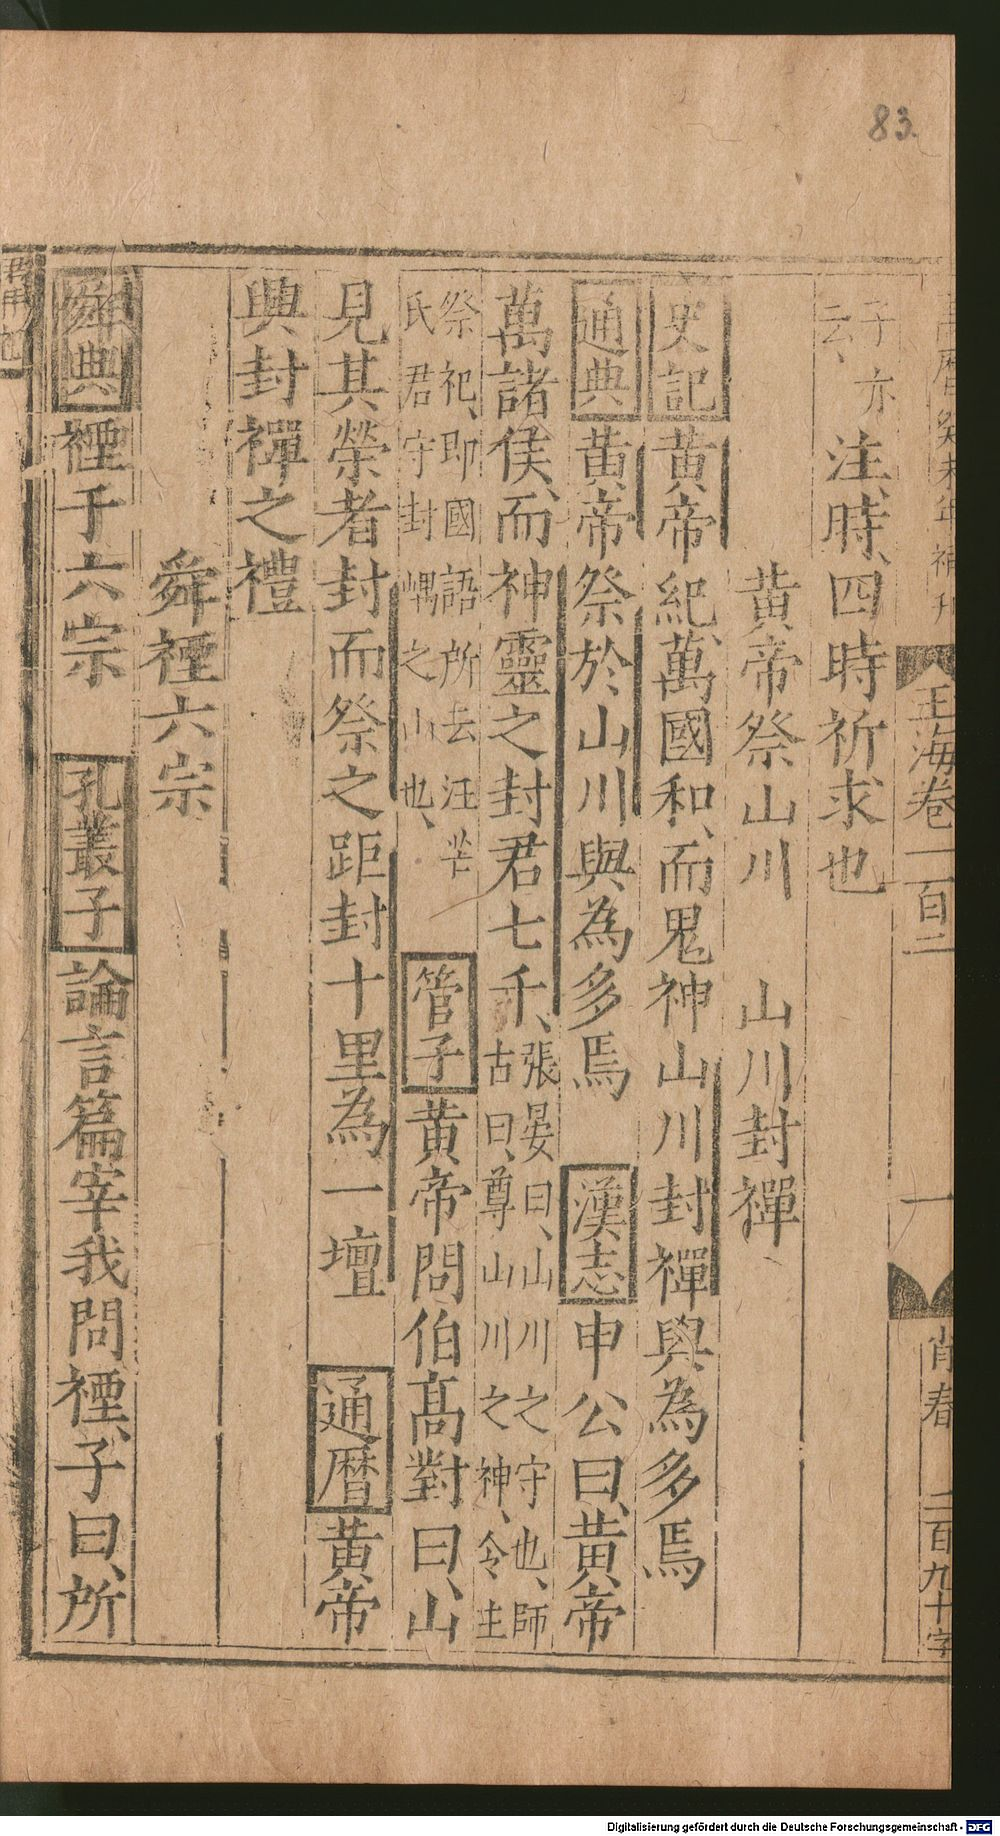 83.
萬曆癸未年補刊
玉海卷一百二
一
肖春
二百九十字
子亦
云、
注、時、四時祈求也
黃帝祭山川 山川封禪
史記黃帝紀、萬國和、而鬼神山川封禪與為多焉
通典黃帝祭於山川與為多焉 漢志申公曰、黃帝
萬諸侯、而神靈之封君七千、
張晏曰、山川之守也、師
古曰、尊山川之神、令主
祭祀、即國語所云汪芒
氏君守封嵎之山也、
管子黃帝問伯高對曰、山
見其榮者封而祭之距封十里為一壇 通曆黃帝
興封禪之禮
舜禋六宗
舜典禋于六宗 孔叢子論言篇宰我問禋、子曰、所
Digitalisierung gefördert durch die Deutsche Forschungsgemeinschaft - DFG